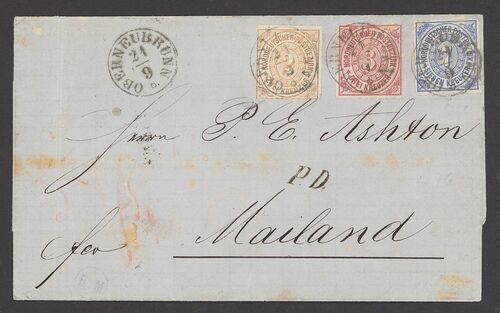 OBERNEUBRUNN
21/9
NORDDEUTSCHER POSTBEZIRK
2
KREUZER
NORDDEUTSCHER POSTBEZIRK
3
KREUZER
NORDDEUTSCHER POSTBEZIRK
7
KREUZER
Herrn P. E. Ashton
P.D.
fco Mailand